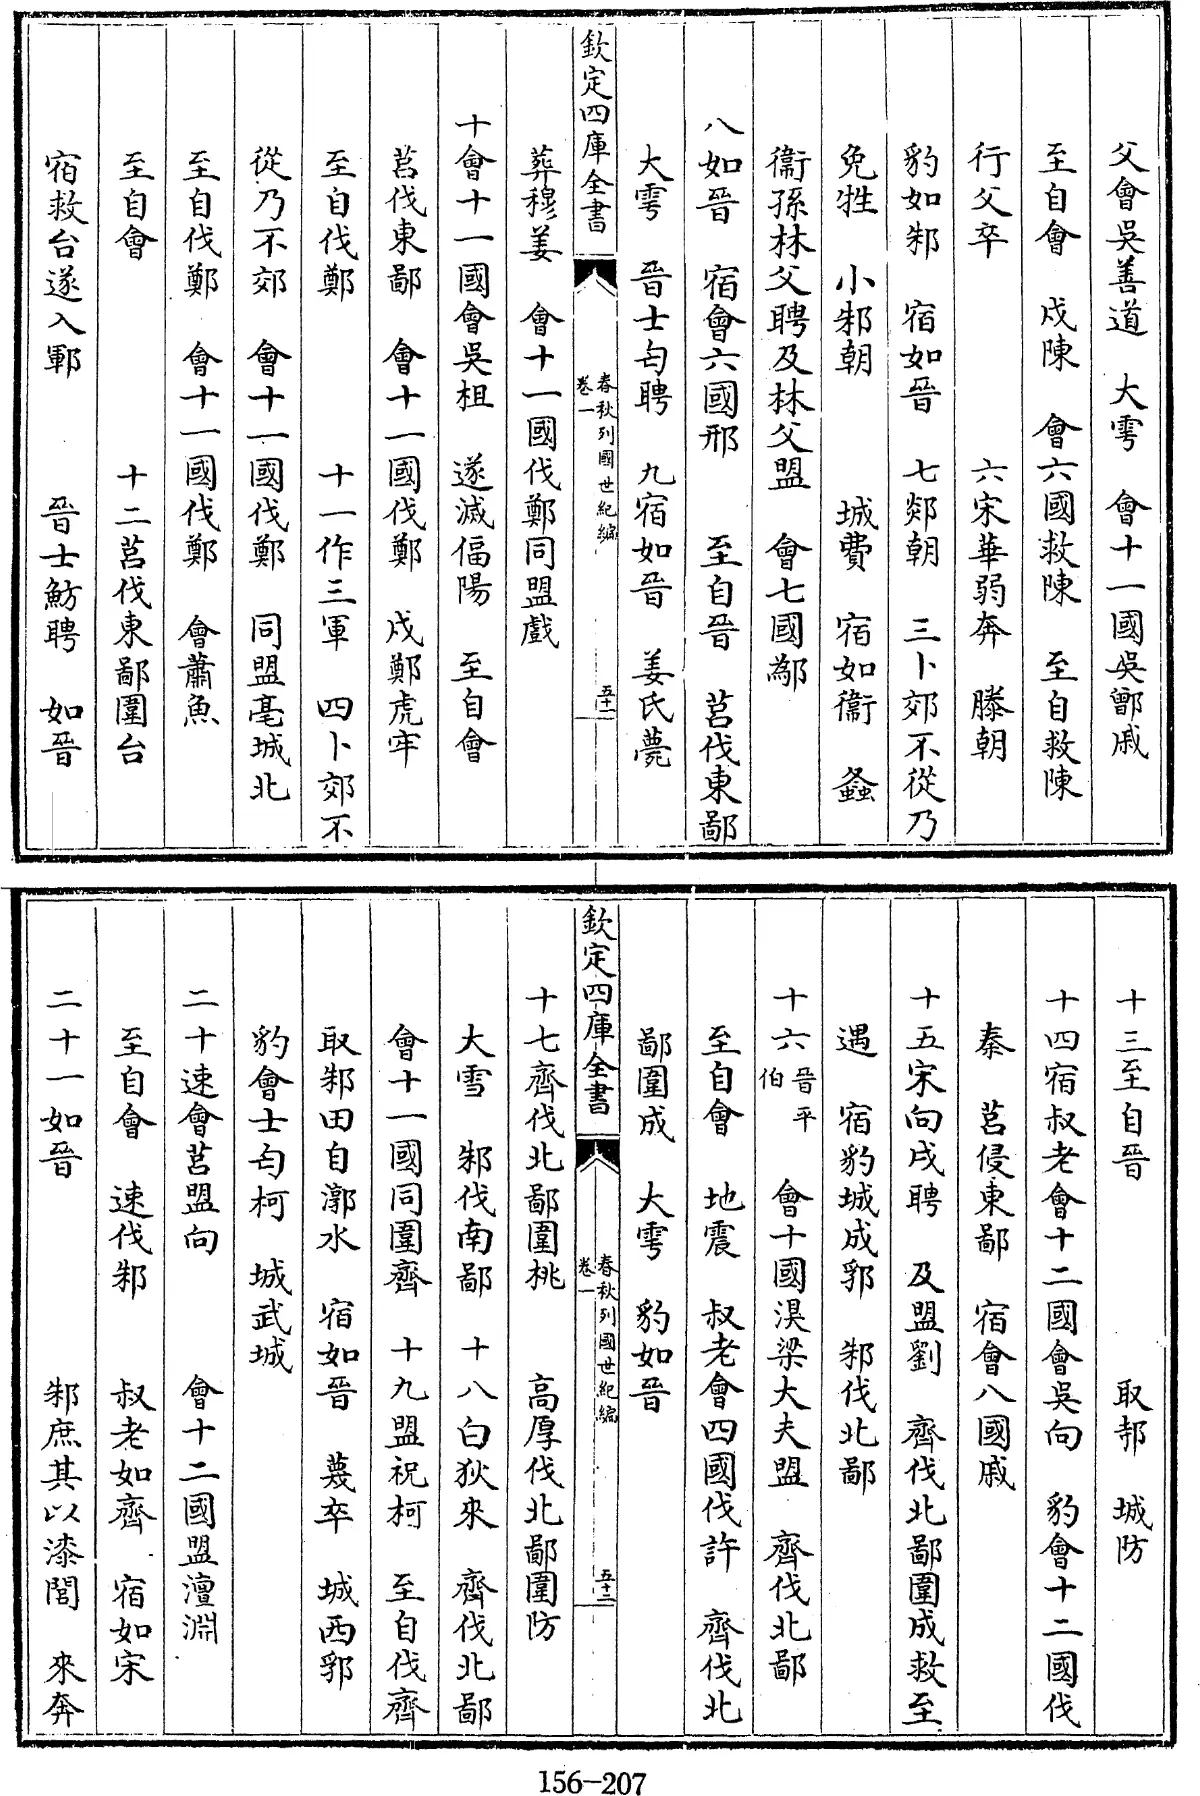 父會吳善道　大雩　會十一國吳鄫戚
至自會　戍陳　會六國救陳　至自救陳
行父卒　六宋華弱奔　滕朝
豹如邾　宿如晉　七郯朝　三卜郊不從乃
免牲　小邾朝　城費　宿如衞　螽
衞孫林父聘及林父盟　會七國鄬
八如晉　宿會六國邢　至自晉　莒伐東鄙
大雩　晉士匄聘　九宿如晉　姜氏薨
欽定四庫全書
春秋列國世紀編
卷一
五十一
葬穆姜　會十一國伐鄭同盟戲
十會十一國會吳柤　遂滅偪陽　至自會
莒伐東鄙　會十一國伐鄭　戍鄭虎牢
至自伐鄭　十一作三軍　四卜郊不
從乃不郊　會十一國伐鄭　同盟亳城北
至自伐鄭　會十一國伐鄭　會蕭魚
至自會　十二莒伐東鄙圍台
宿救台遂入鄆　晉士魴聘　如晉
十三至自晉　取邿　城防
十四宿叔老會十二國會吳向　豹會十二國伐
秦　莒侵東鄙　宿會八國戚
十五宋向戌聘　及盟劉　齊伐北鄙圍成救至
遇　宿豹城成郛　邾伐北鄙
十六晉平伯　會十國湨梁大夫盟　齊伐北鄙
至自會　地震　叔老會四國伐許　齊伐北
鄙圍成　大雩　豹如晉
欽定四庫全書
春秋列國世紀編
卷一
五十二
十七齊伐北鄙圍桃　高厚伐北鄙圍防
大雪　邾伐南鄙　十八白狄來　齊伐北鄙
會十一國同圍齊　十九盟祝柯　至自伐齊
取邾田自漷水　宿如晉　蔑卒　城西郛
豹會士匄柯　城武城
二十速會莒盟向　會十二國盟澶淵
至自會　速伐邾　叔老如齊　宿如宋
二十一如晉　邾庶其以漆閭　來奔
156-207